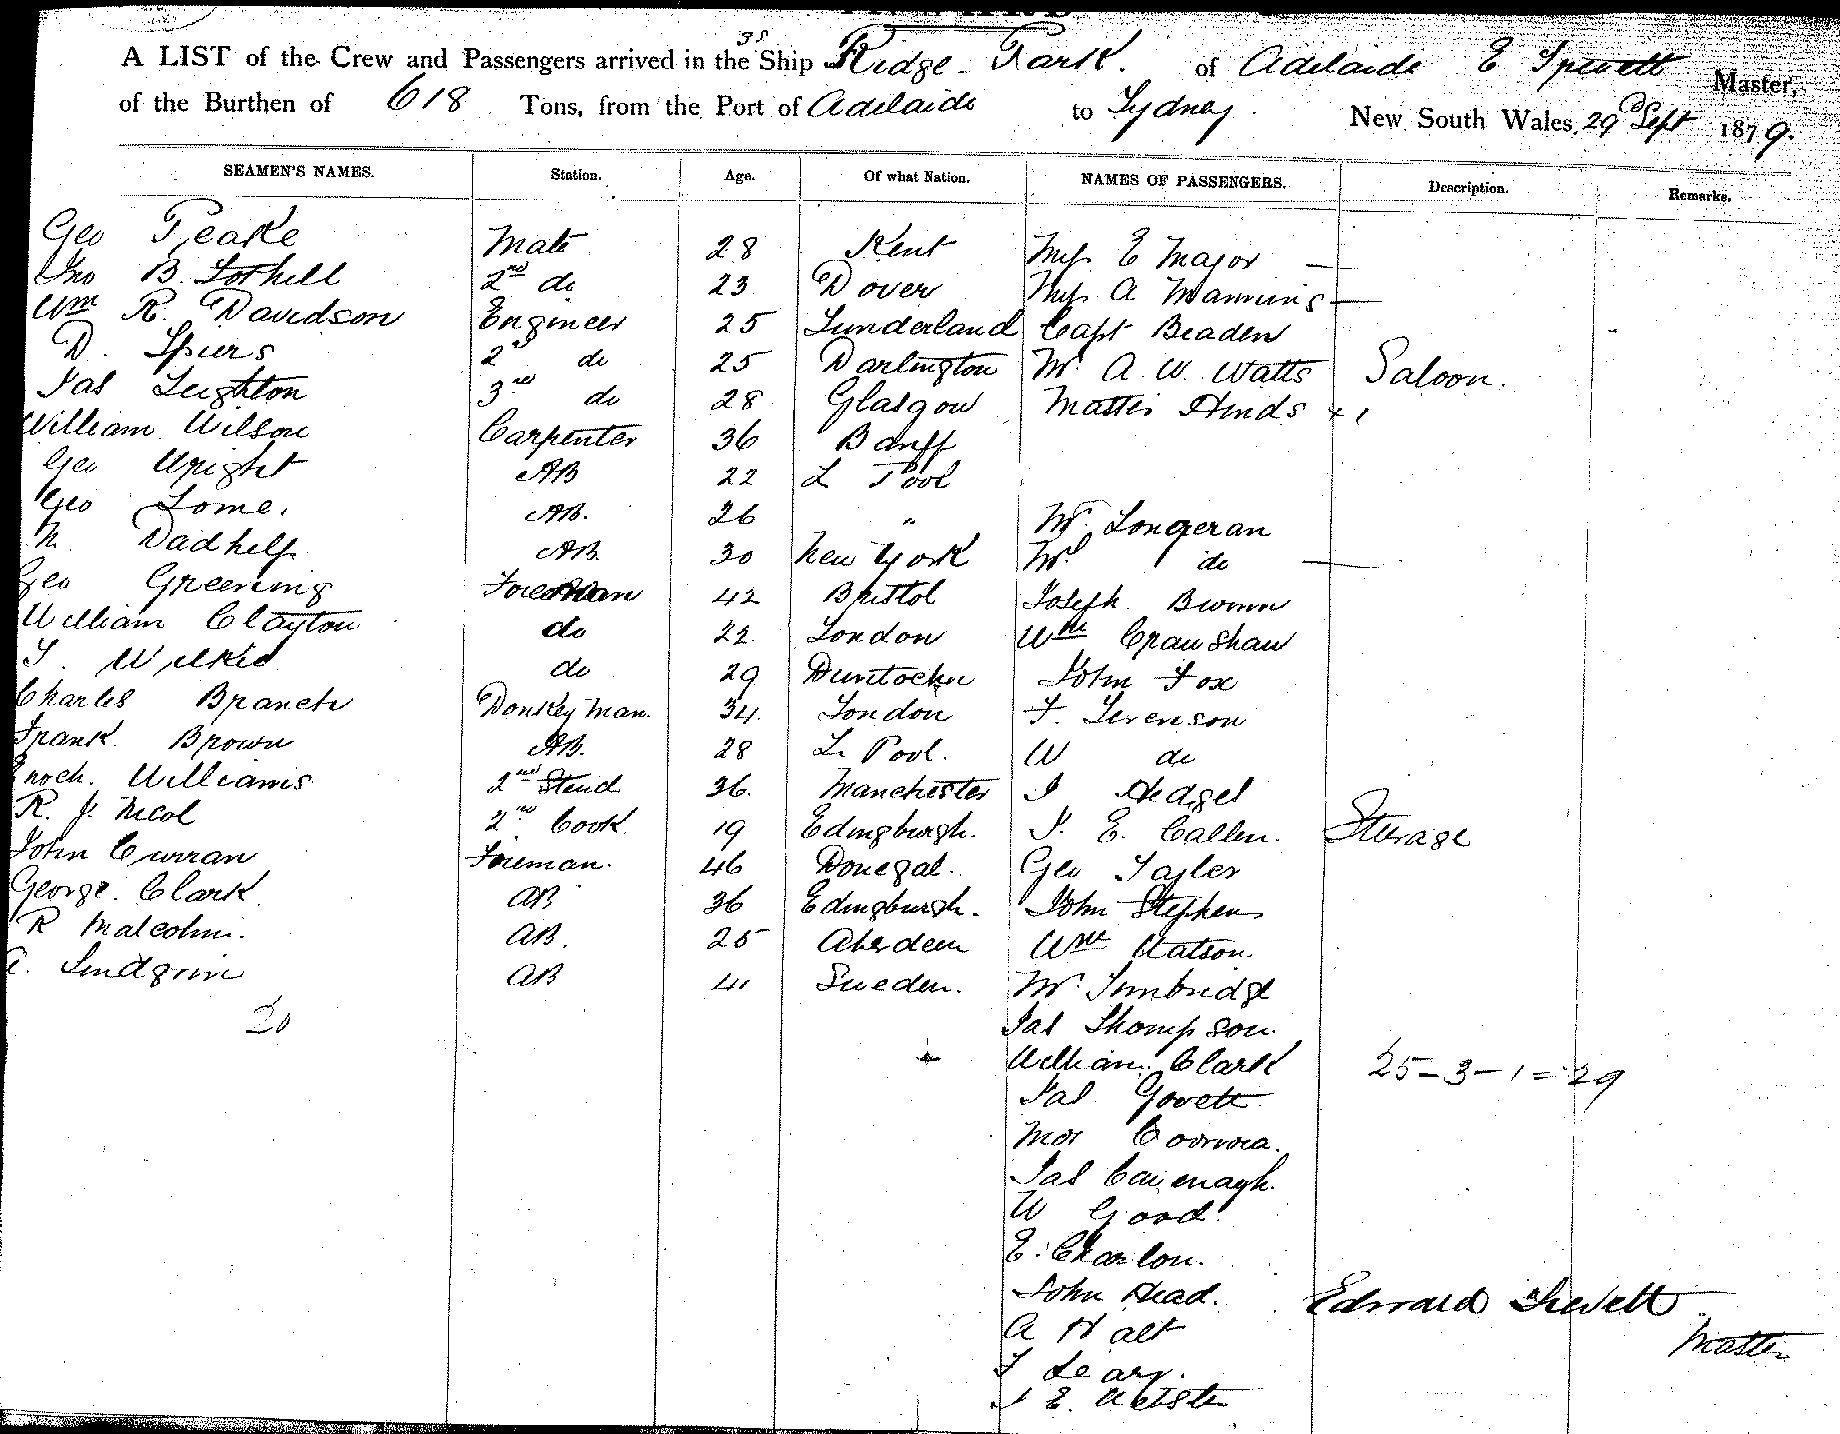 A LIST of the Crew and Passengers arrived in the SS Ship Ridge Park of Adelaide E Trevett Master,
of the Burthen of 618 Tons, from the Port of Adelaide to Sydney New South Wales, 29 Sept 1879.
SEAMEN'S NAMES. Station. Age. Of what Nation. NAMES OF PASSENGERS. Description. Remarks.
Geo Pearke Mate 28 Kent Miss E Major —
Jno B. Tothill 2nd do 23 Dover Miss A Manning —
Wm R. Davidson Engineer 25 Sunderland Capt Beaden
D. Spiers 2nd do 25 Darlington Mr A. W. Watts Saloon.
Jas Leighton 3rd do 28 Glasgow Master Hinds × 1
William Wilson Carpenter 36 Banff
Geo Wright AB 22 L Pool
Geo Lome. AB. 26 " Mr Longeran
N. AB 30 New York Mrs do —
Geo Greening Foreman 42 Bristol Joseph
William Clayton do 22 London Wm Crawshaw
J. Wilkie do 29 Duntocher John Fox
Charles Branch Donkey Man. 34 London F. Levenson
Frank Brown AB. 28 L. Pool. W do
Enoch. Williams 2nd Steud 36. Manchester J Hedgel
R. J. Nicol 2nd Cook 19 Edingburgh. J. E. Callen. Steerage
John Curran Foreman. 46 Donegal. Geo Tayler
George. Clark AB 36 Edingburgh. John Stephens
R Malcolm. AB. 25 Aberdeen Wm Watson.
A. Lindgrin AB 41 Sweden. Mr Tunbridge
20 Jas Thompson.
William Clark 25 - 3 - 1 = 29
Jas Govett
Jas Cavenagh.
W Good
E. Charlon.
John Head. Edward Trevett
A Halt Master
J Leary.
J E.